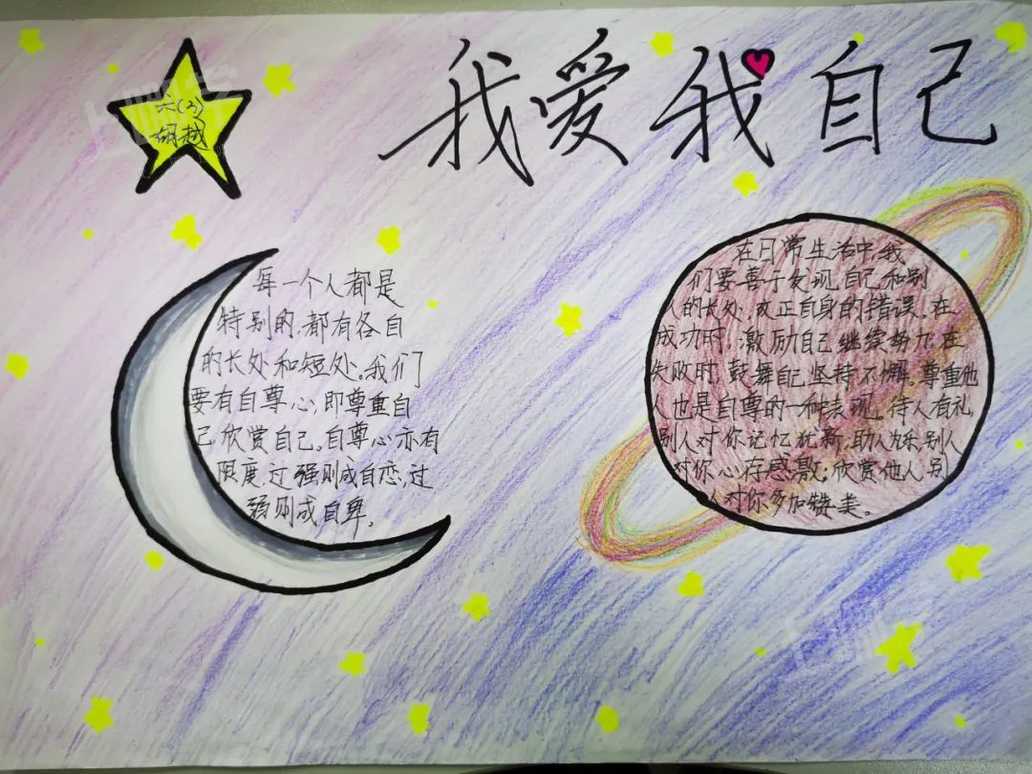 我爱我自己
六(2)
胡越
每一个人都是
特别的,都有各自
的长处和短处。我们
要有自尊心,即尊重自
己欣赏自己。自尊心亦有
限度,过强则成自恋,过
弱则成自卑。
在日常生活中,我
们要善于发现自己和别
人的长处,改正自身的错误。在
成功时,激励自己继续努力,在
失败时,鼓舞自己坚持不懈。尊重他
人也是自尊的一种表现。待人有礼,
别人对你记忆犹新,助人为乐,别人
对你心存感激,欣赏他人,别
人对你多加赞美。